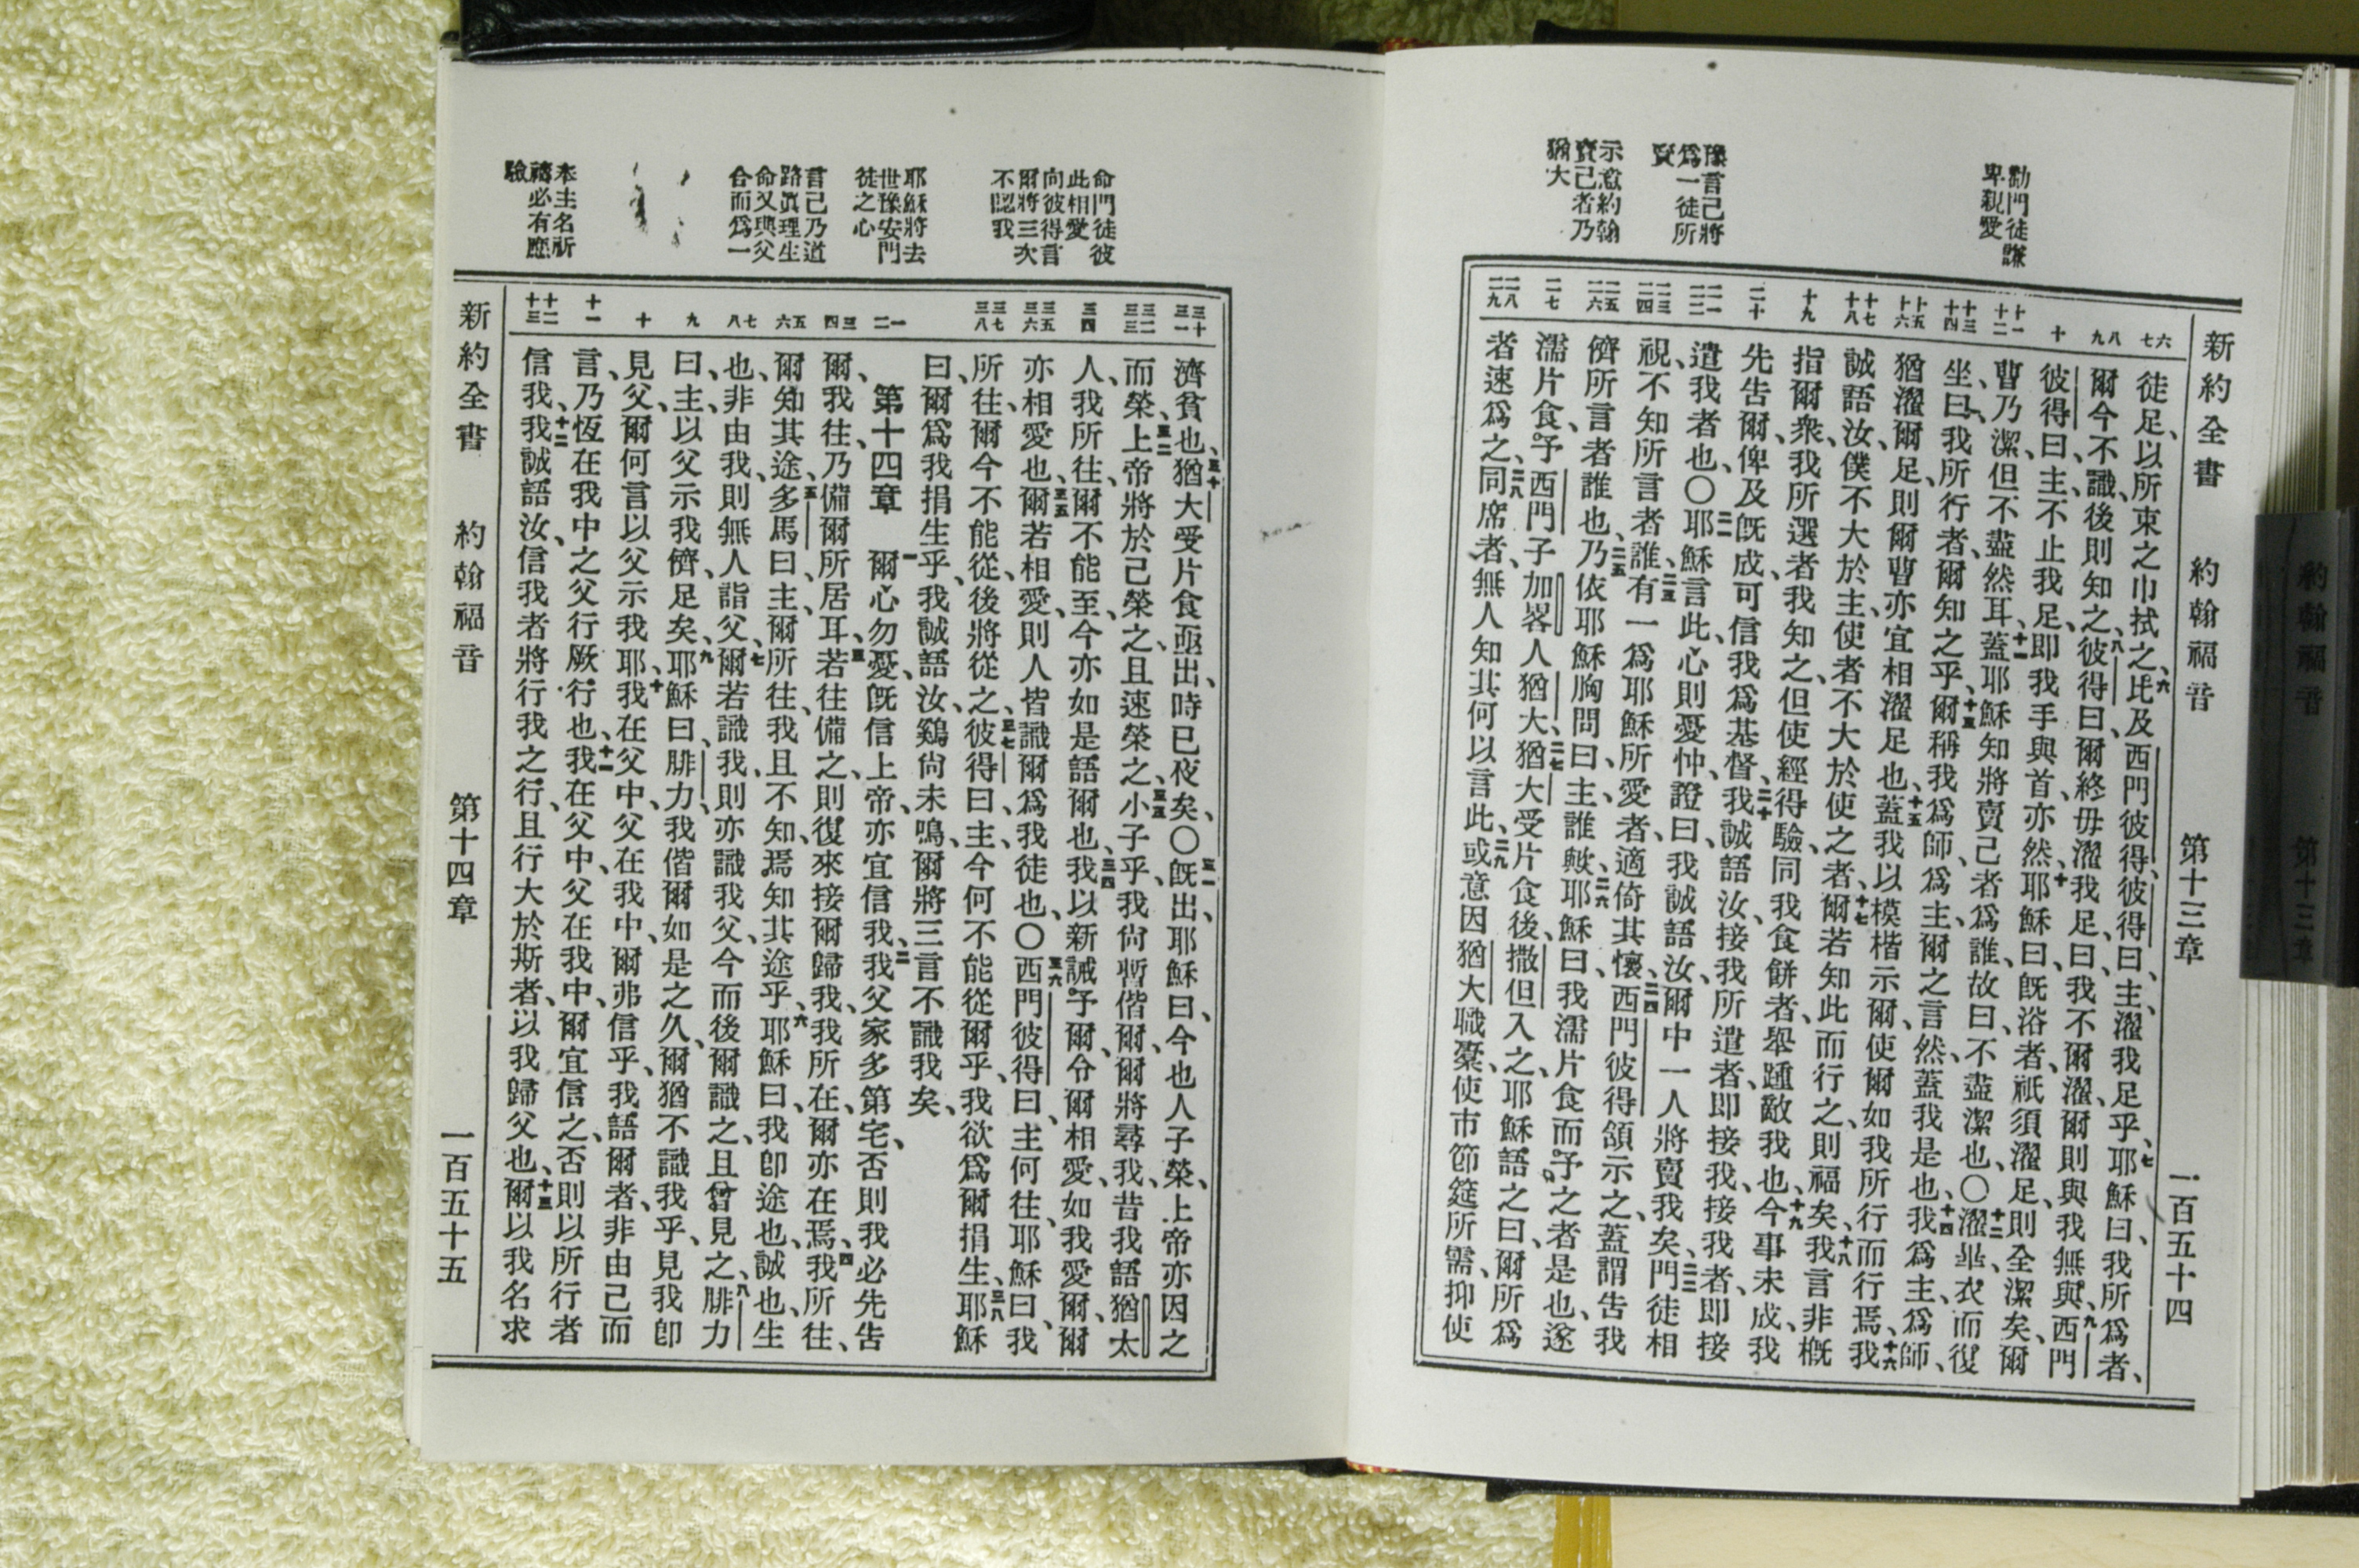 新約全書 約翰福音 第十三章 一百五十四
勸門徒謙
卑親愛
豫言己將
爲一徒所
賣
示意約翰
賣己者乃
猶大
六 七
八 九
十
十一 十二
十三 十四
十五 十六
十七 十八
十九
二十
二一 二二
二三 二四
二五 二六
二七
二八 二九
徒足、以所束之巾拭之、比及西門彼得、彼得曰、主、濯我足乎、耶穌曰、我所爲者、
爾今不識、後則知之、彼得曰、爾終毋濯我足、曰、我不爾濯、爾則與我無與、西門
彼得曰、主、不止我足、即我手與首、亦然、耶穌曰、旣浴者、祇須濯足、則全潔矣、爾
曹乃潔、但不盡然耳、蓋耶穌知將賣己者爲誰、故曰、不盡潔也、〇濯畢、衣而復
坐、曰、我所行者、爾知之乎、爾稱我爲師、爲主、爾之言然、蓋我是也、我爲主、爲師、
猶濯爾足、則爾曹亦宜相濯足也、蓋我以模楷示爾、使爾如我所行而行焉、我
誠語汝、僕不大於主、使者不大於使之者、爾若知此而行之、則福矣、我言非概
指爾衆、我所選者我知之、但使經得驗、同我食餅者、舉踵敵我也、今事未成、我
先告爾、俾及旣成、可信我爲基督、我誠語汝、接我所遣者、即接我、接我者、即接
遣我者也、〇耶穌言此、心則憂忡、證曰、我誠語汝、爾中一人將賣我矣、門徒相
視、不知所言者誰、有一爲耶穌所愛者、適倚其懷、西門彼得頷示之、蓋謂告我
儕所言者誰也、乃依耶穌胸問曰、主、誰歟、耶穌曰、我濡片食而予之者是也、遂
濡片食、予西門子加畧人猶大、猶大受片食後、撒但入之、耶穌語之曰、爾所爲
者速爲之、同席者、無人知其何以言此、或意因猶大職橐、使市節筵所需、抑使
新約全書 約翰福音 第十四章 一百五十五
命門徒彼
此相愛
向彼得言
爾將三次
不認我
耶穌將去
世豫安門
徒之心
言己乃道
路眞理生
命又與父
合而爲一
奉主名祈
禱必有應
驗
三十 三一
三二 三三
三四
三五 三六
三七 三八
一 二
三 四
五 六
七 八
九
十
十一
十二 十三
濟貧也、猶大受片食亟出、時已夜矣、〇旣出、耶穌曰、今也人子榮、上帝亦因之
而榮、上帝將於己榮之、且速榮之、小子乎、我尙暫偕爾、爾將尋我、昔我語猶太
人、我所往、爾不能至、今亦如是語爾也、我以新誡予爾、令爾相愛、如我愛爾、爾
亦相愛也、爾若相愛、則人皆識爾爲我徒也、〇西門彼得曰、主何往、耶穌曰、我
所往、爾今不能從、後將從之、彼得曰、主、今何不能從爾乎、我欲爲爾捐生、耶穌
曰、爾爲我捐生乎、我誠語汝、鷄尙未鳴、爾將三言不識我矣、
第十四章 爾心勿憂、旣信上帝、亦宜信我、我父家多第宅、否則我必先告
爾、我往、乃備爾所居耳、若往備之、則復來接爾歸我、我所在、爾亦在焉、我所往、
爾知其途、多馬曰、主、爾所往、我且不知、焉知其途乎、耶穌曰、我卽途也、誠也、生
也、非由我、則無人詣父、爾若識我、則亦識我父、今而後爾識之、且曾見之、腓力
曰、主、以父示我儕足矣、耶穌曰、腓力、我偕爾如是之久、爾猶不識我乎、見我卽
見父、爾何言以父示我耶、我在父中、父在我中、爾弗信乎、我語爾者、非由己而
言、乃恆在我中之父行厥行也、我在父中、父在我中、爾宜信之、否則以所行者
信我、我誠語汝、信我者將行我之行、且行大於斯者、以我歸父也、爾以我名求
約翰福音 第十三章